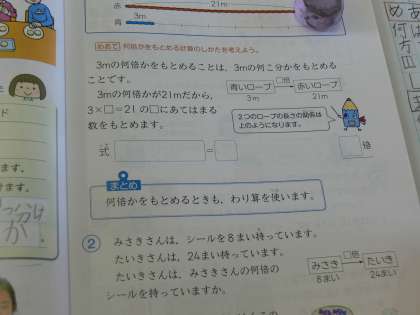 赤
21m
青
3m
めあて 何倍かをもとめる計算のしかたを考えよう。
3mの何倍かをもとめることは、3mの何こ分かをもとめる
ことです。
3mの何倍かが21mだから、
3×□=21 の□にあてはまる
数をもとめます。
□倍
青いロープ 赤いロープ
3m 21m
2つのロープの長さの関係は
上のようになります。
式 = 倍
まとめ
何倍かをもとめるときも、わり算を使います。
2 みさきさんは、シールを8まい持っています。
たいきさんは、24まい持っています。
たいきさんは、みさきさんの何倍の
シールを持っていますか。
□倍
みさき たいき
8まい 24まい
ド
ます。
けます。